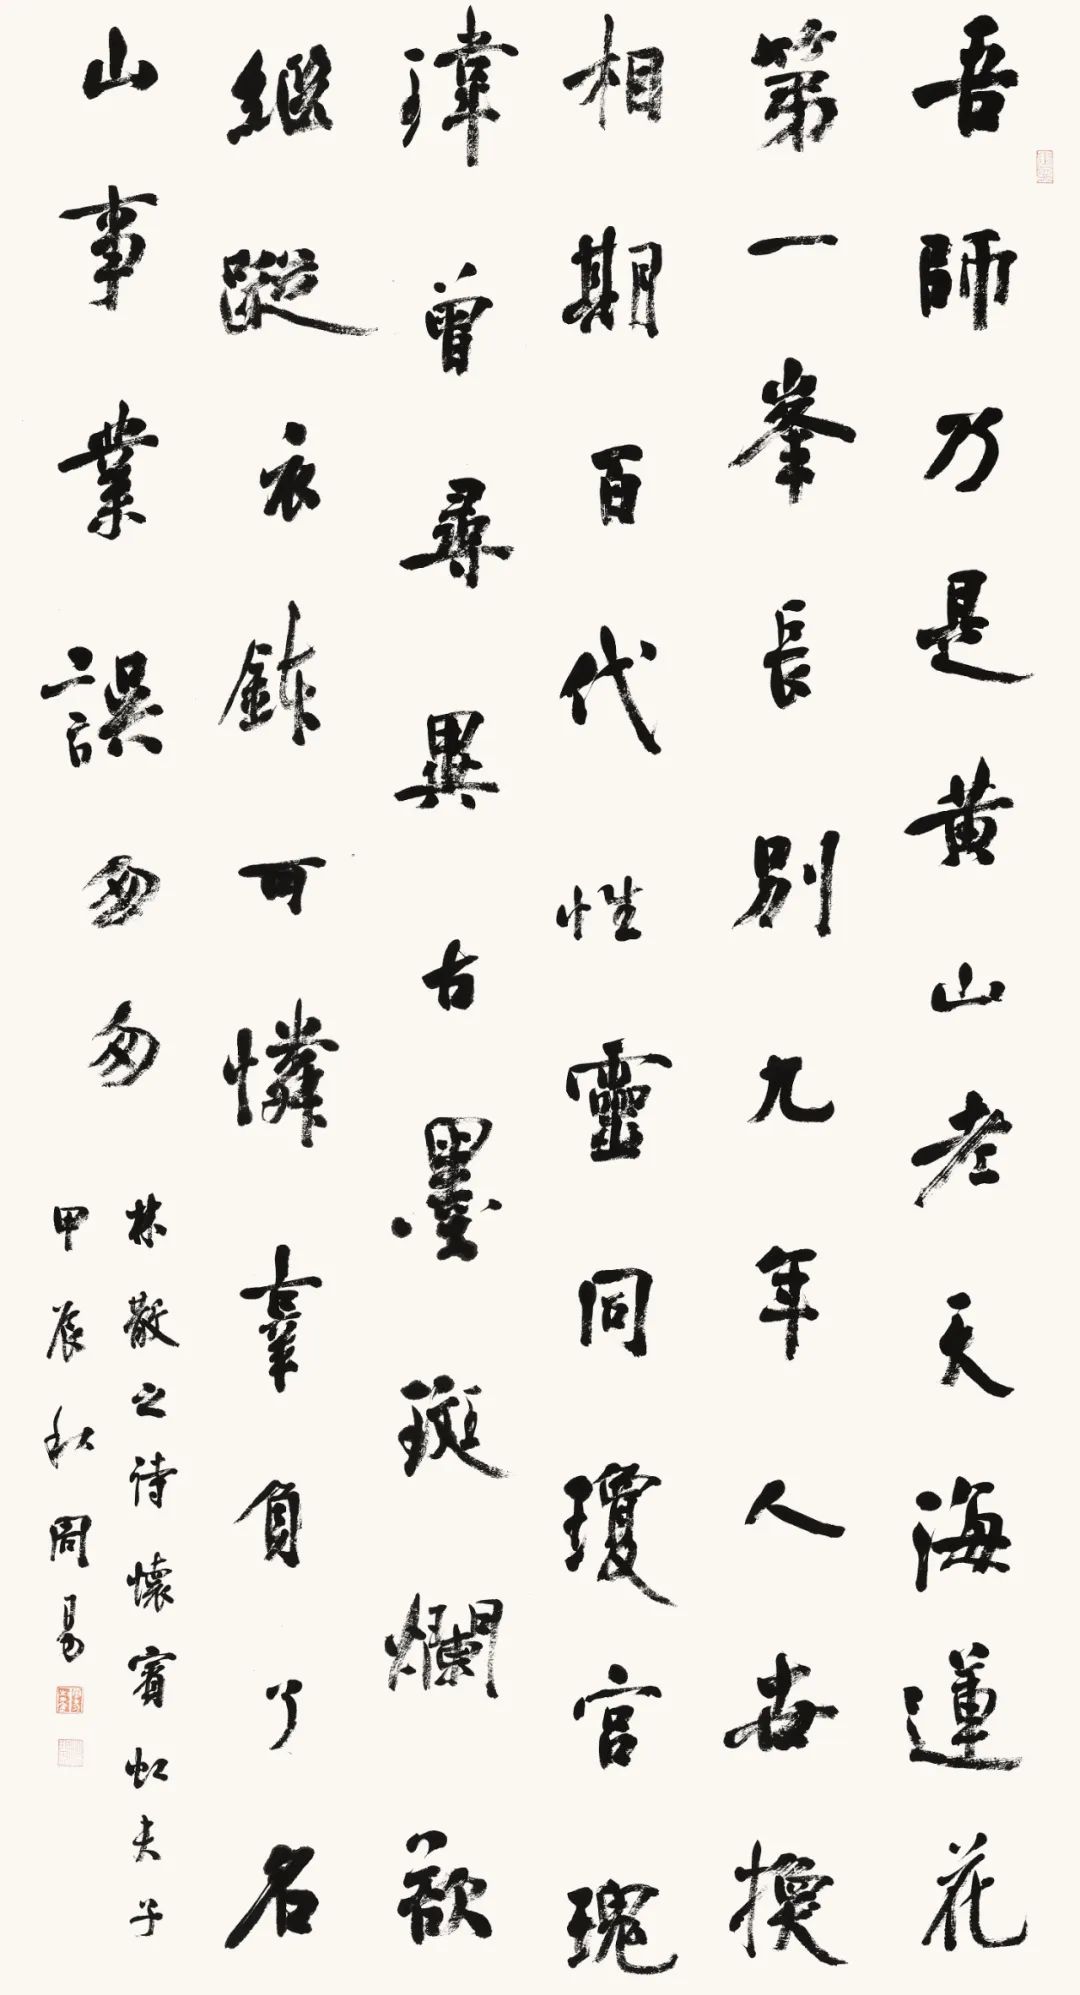 吾師乃是黄山老天海蓮花
第一峯長別九年人世換
相期百代性靈同瓊宫瑰
瑋曾尋異古墨斑爛欲
繼蹤衣鉢可憐辜負了名
山事業誤匆匆
林散之詩懷賓虹夫子
甲辰秋周易